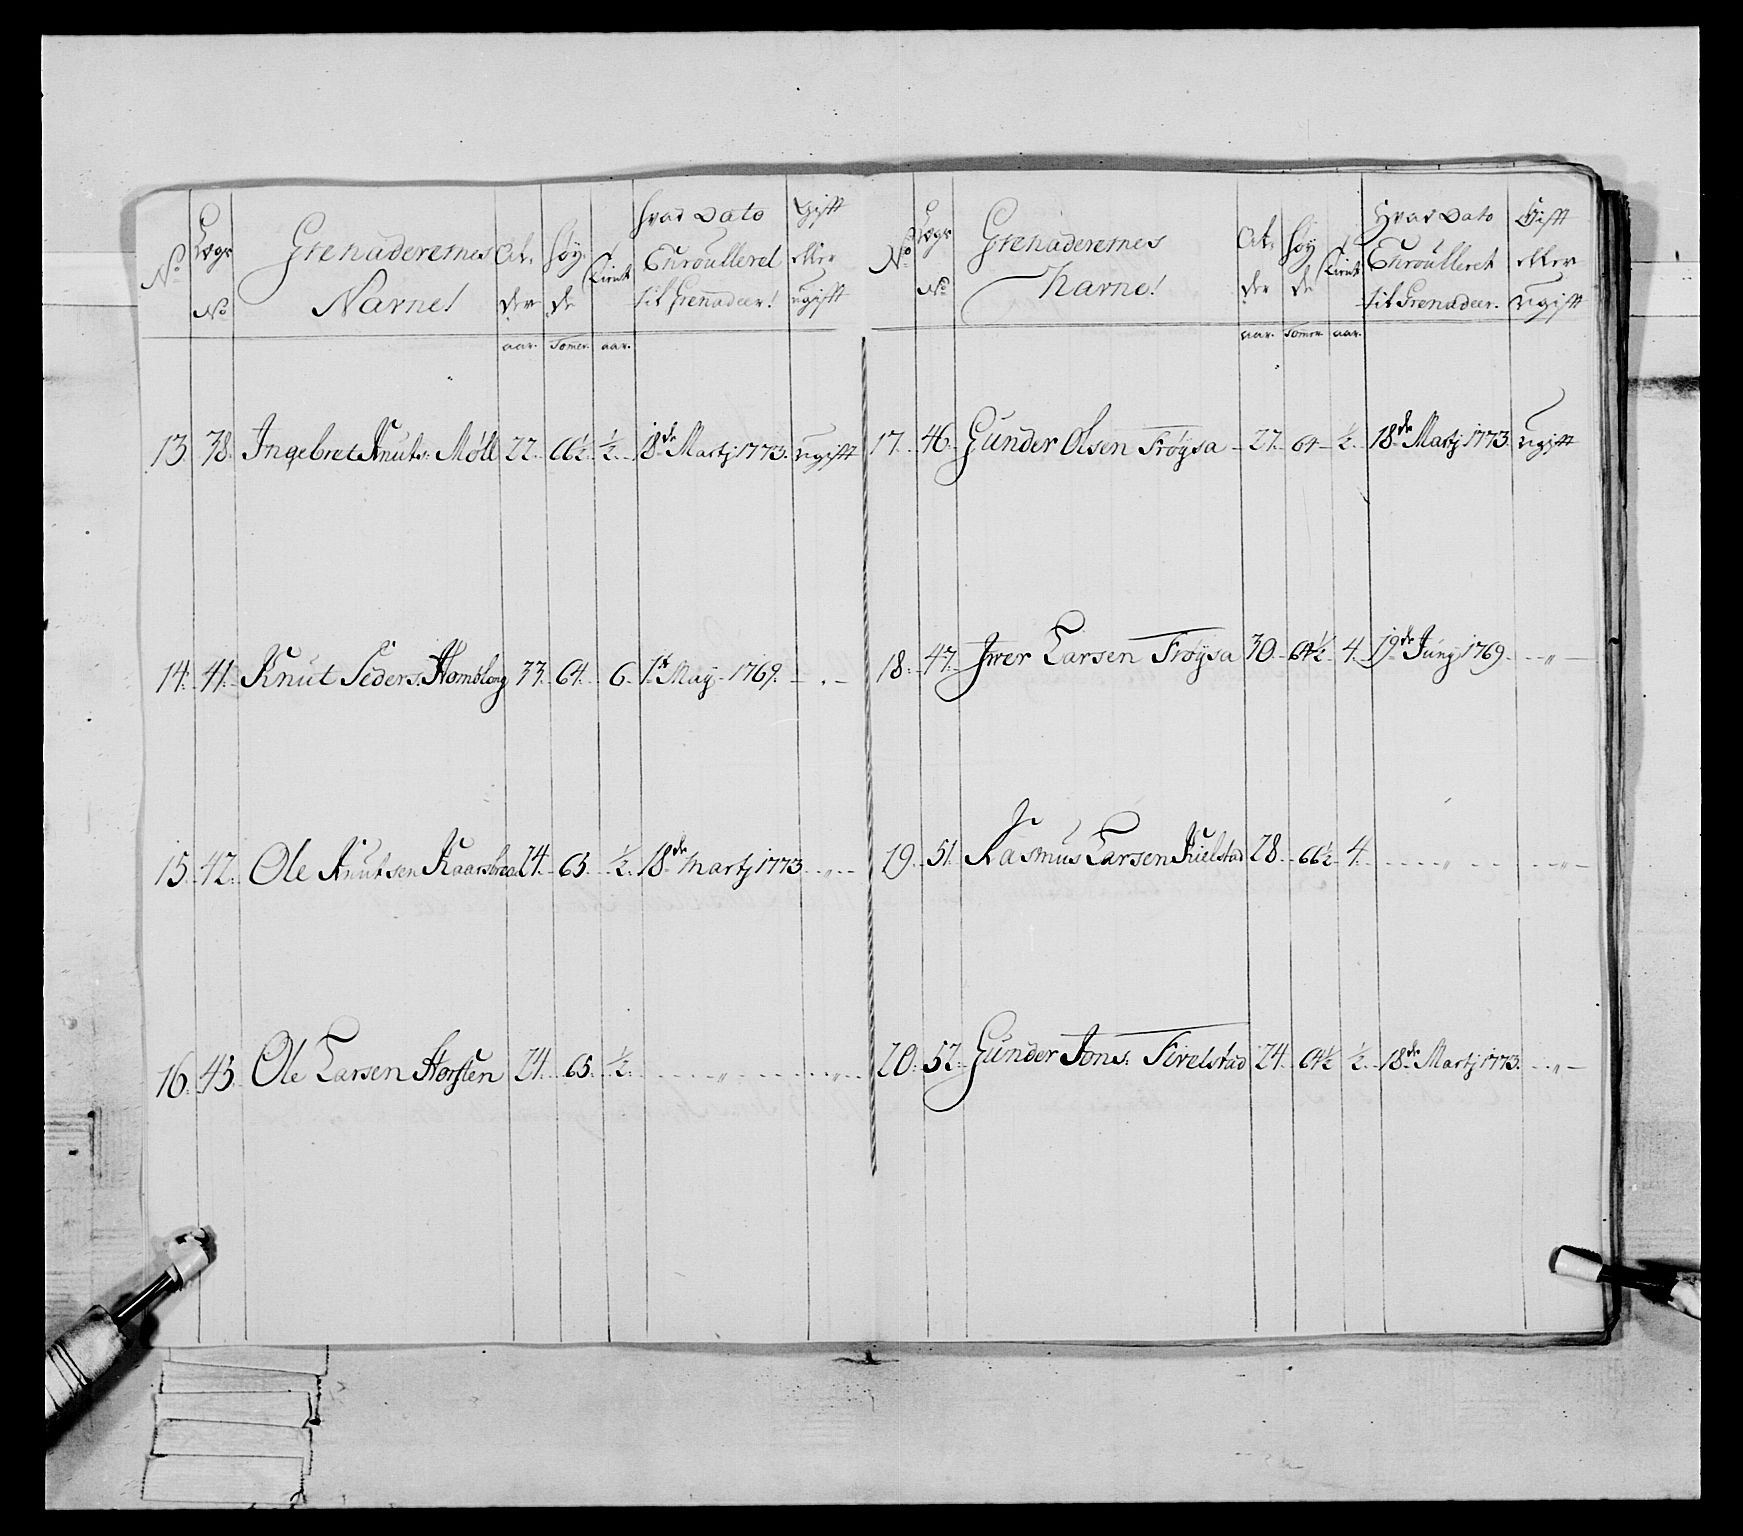 No Lægs No Grenaderernes Navne Al,, der Høy,, de Tient Hvad Dato Enroulleret til Grenadeer Gift eller ugift
aar. Tomer. aar.
13. 38. Ingebret Knuts: Möll 22. 66½. ½. 18de Martj 1773. ugift
14. 41. Knut Peders: 33. 64. 6. 1te Maÿ 1769. - . -
15. 42. Ole Knutsen 24. 65. ½. 18de Martj 1773. - „ -
16. 43. Ole Larsen 24. 65. ½. - „ - - „ -
No Lægs No Grenaderernes Navne Al,, der Høy de Tient Hvad Dato Enroulleret til Grenadeer. Gift eller ugift
aar. Tomer. aar.
17. 46. Gunder Olsen Frøÿsa 27. 64 ½. 18de Martj 1773 ugift
18. 47. Iwer Larsen Frøÿsa 30. 64½ 4. 19de Junÿ 1769. - „ -
19. 51. Rasmus Larsen Kielstad 28. 66½ 4. - „ - - „ -
20. 52. Gunder Jons: 24. 64½ ½. 18de Martj 1773. - „ -